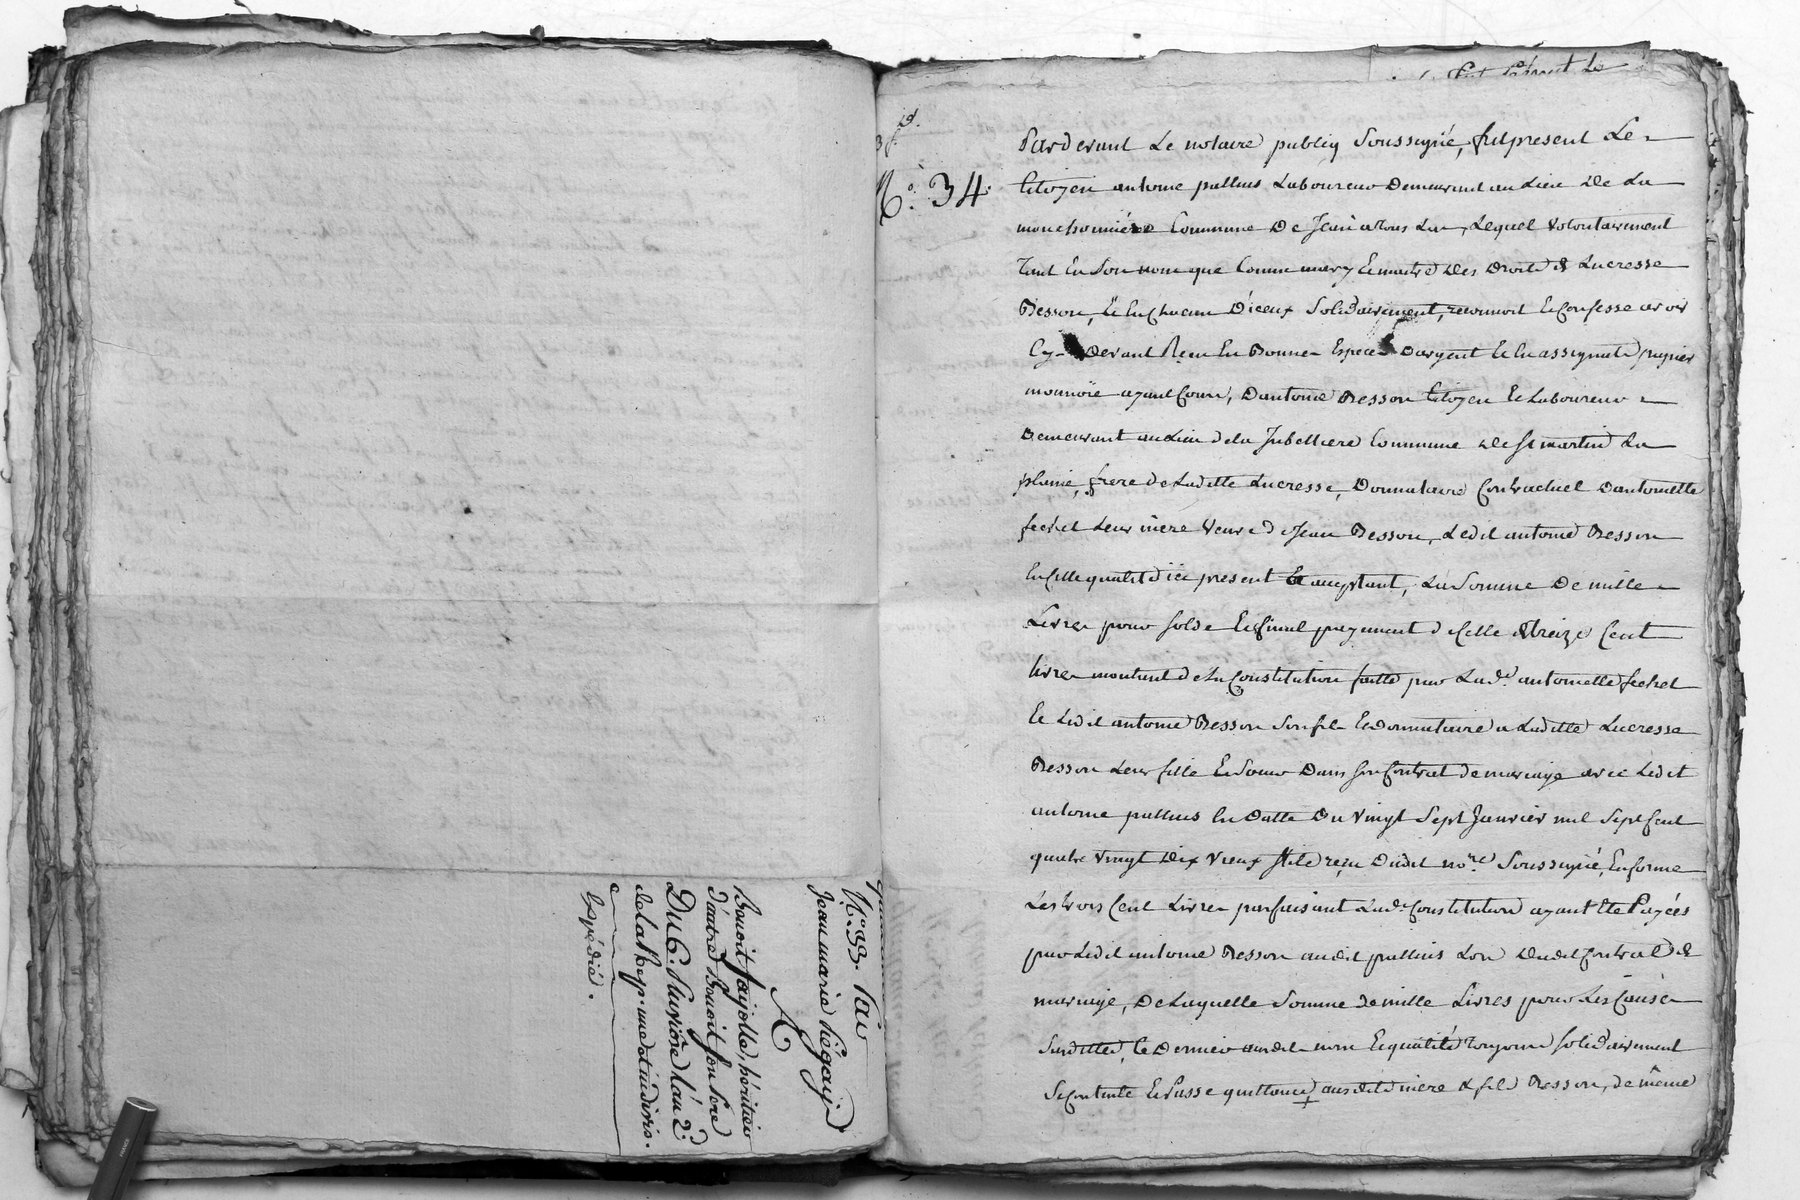 N.° 33. Par
Jean marie Légaij
A
Benoit fayolle, héritier
d'autre Benoit son Pere
Du 6. Pluviôse l'an 2.e
de la Rep. une et indivis.
Expédié.
N.° 34.
Pardevant Le notaire publiq Soussigné, fut present Le
Citoyen antoine pallius Laboureur Demeurant au Lieu De La
monchonniére Commune De Lequel volontairement
tant En Son nom que Comme mary Et maitre Des Droits de Lucresse
Besson, Et En Chacun D'iceux Solidairement, reconnoit Et Confesse avoir
Cy-Devant Reçu En Bonnes Especes Dargent Et En assignats papier
monnoie ayant Cours, Dantoine Besson Citoyen Et Laboureur
Demeurant au Lieu de la Jubelliere Commune De St martin La
plaine, frere de Laditte Lucresse, Donnataire Contractuel Dantoinette
fechet Leur mere Veuve de Jean Besson, Ledit antoine Besson
En Cette qualité ici present Et acceptant, La Somme De mille
Livres pour solde Et final payement de Celle de treize Cent
livres montant de La Constitution faitte par Lad.e antoinette fechet
Et Ledit antoine Besson Son fils Et Donnataire a Laditte Lucresse
Besson Leur fille Et Soeur Dans son Contrat de mariage avec Ledit
antoine pallius En Datte Du vingt Sept Janvier mil Sept Cent
quatre vingt Dix vieux stile reçu Dudit no.re Soussigné, En forme
Les trois Cent Livres parfaisant Lad.e Constitution ayant Eté Payées
par Ledit antoine Besson audit pallius Lors Dudit Contrat de
mariage, De Laquelle Somme de mille Livres pour Les Causes
Susdittes, Ce Dernier audit nom Et qualité Toujours solidairement
Se Contente Et Passe quittance ausdits mère & fils Besson, de même